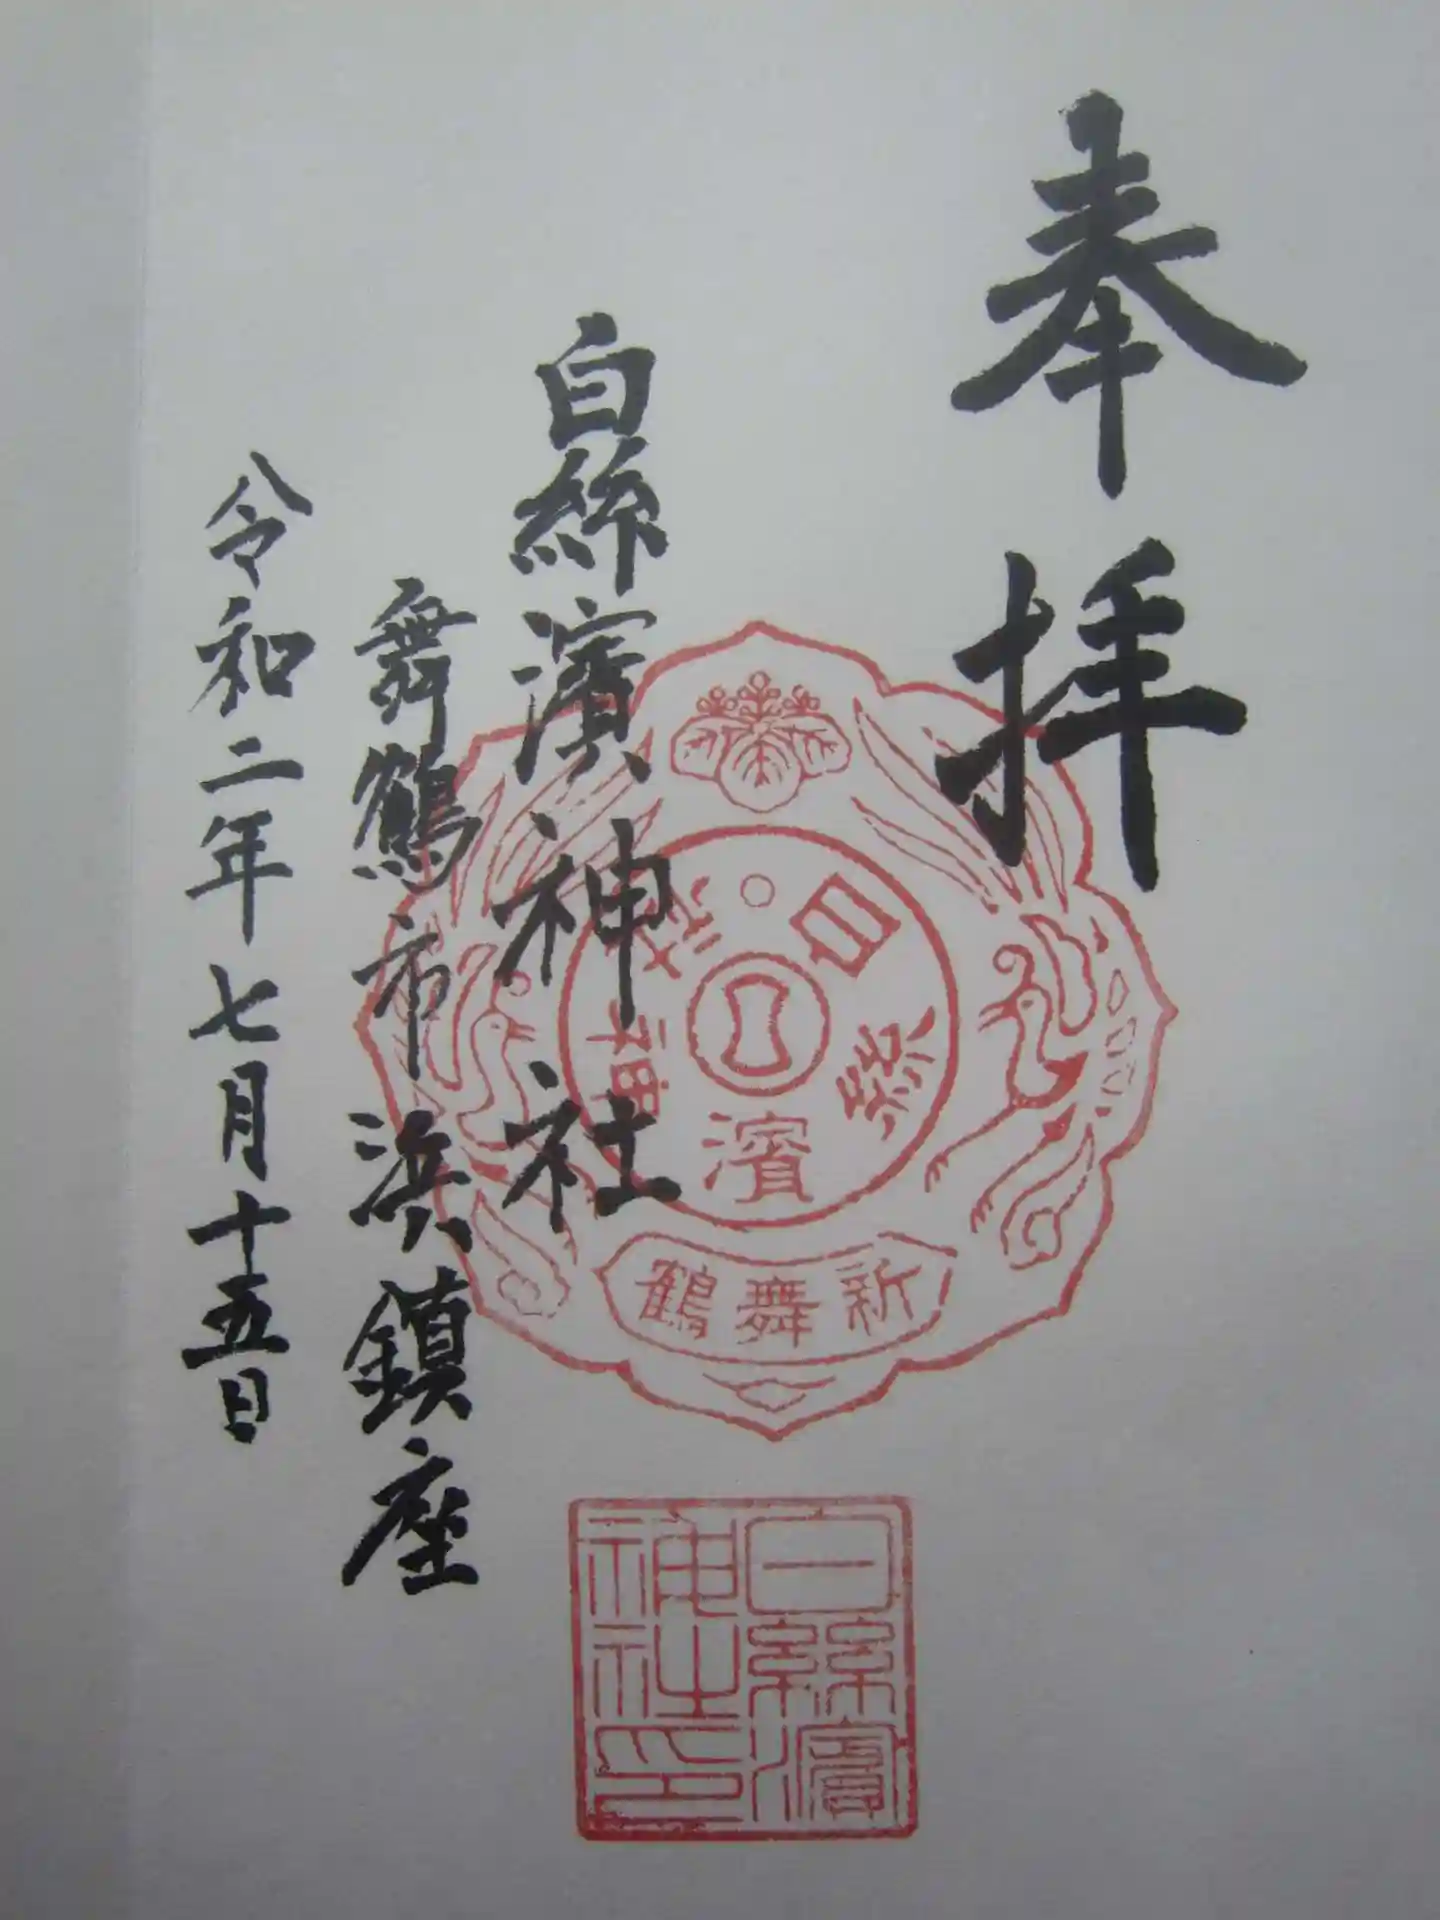 奉拝
白絲濱神社
舞鶴市浜鎮座
令和二年七月十五日
白絲濱神社
新舞鶴
白絲濱
神社印